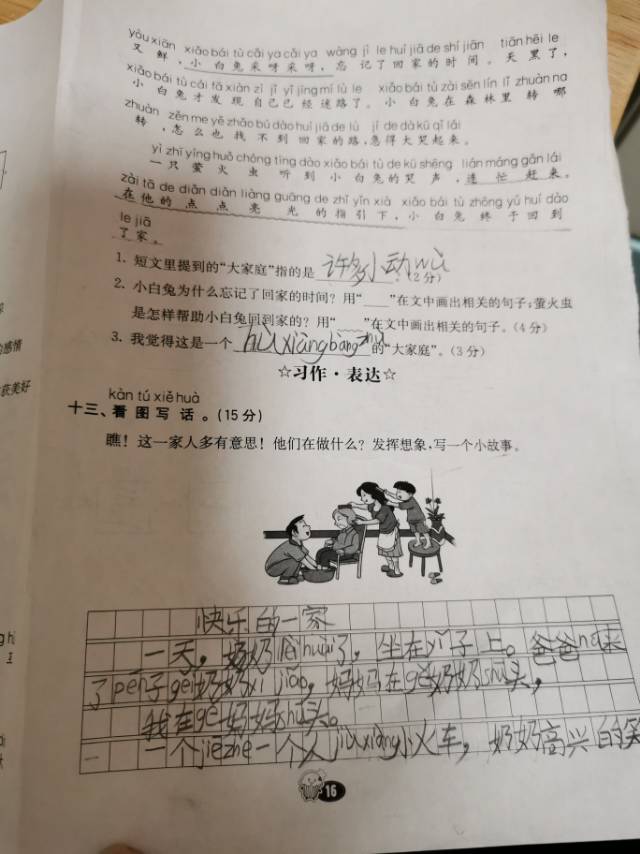 yòu xiān xiǎo bái tù cǎi ya cǎi ya wàng jì le huí jiā de shí jiān tiān hēi le
又鲜,小白兔采呀采呀,忘记了回家的时间。天黑了,
xiǎo bái tù cái fā xiàn zì jǐ yǐ jīng mí lù le xiǎo bái tù zài sēn lín lǐ zhuàn na
小白兔才发现自己已经迷路了。小白兔在森林里转哪
zhuàn zěn me yě zhǎo bú dào huí jiā de lù jí de dà kū qǐ lái
转,怎么也找不到回家的路,急得大哭起来。
yì zhī yíng huǒ chóng tīng dào xiǎo bái tù de kū shēng lián máng gǎn lái
一只萤火虫听到小白兔的哭声,连忙赶来。
zài tā de diǎn diǎn liàng guāng de zhǐ yǐn xià xiǎo bái tù zhōng yú huí dào
在他的点点亮光的指引下,小白兔终于回到
le jiā
了家。
1. 短文里提到的“大家庭”指的是 许多小动wù 。(2分)
2. 小白兔为什么忘记了回家的时间?用“____”在文中画出相关的句子;萤火虫
是怎样帮助小白兔回到家的?用“﹏﹏”在文中画出相关的句子。(4分)
3. 我觉得这是一个 hùxiāngbāngzhù 的“大家庭”。(3分)
☆习作·表达☆
kàn tú xiě huà
十三、看图写话。(15分)
瞧!这一家人多有意思!他们在做什么?发挥想象,写一个小故事。
快乐的一家
一天,奶奶lèihuài了,坐在yǐ子上。爸爸ná来
了pén子gěi奶奶xǐ jiǎo,妈妈在gěi奶奶shū头,
我在gěi妈妈shū头。
一个jiēzhe一个人jiùxiàng小火车,奶奶高兴的笑
16